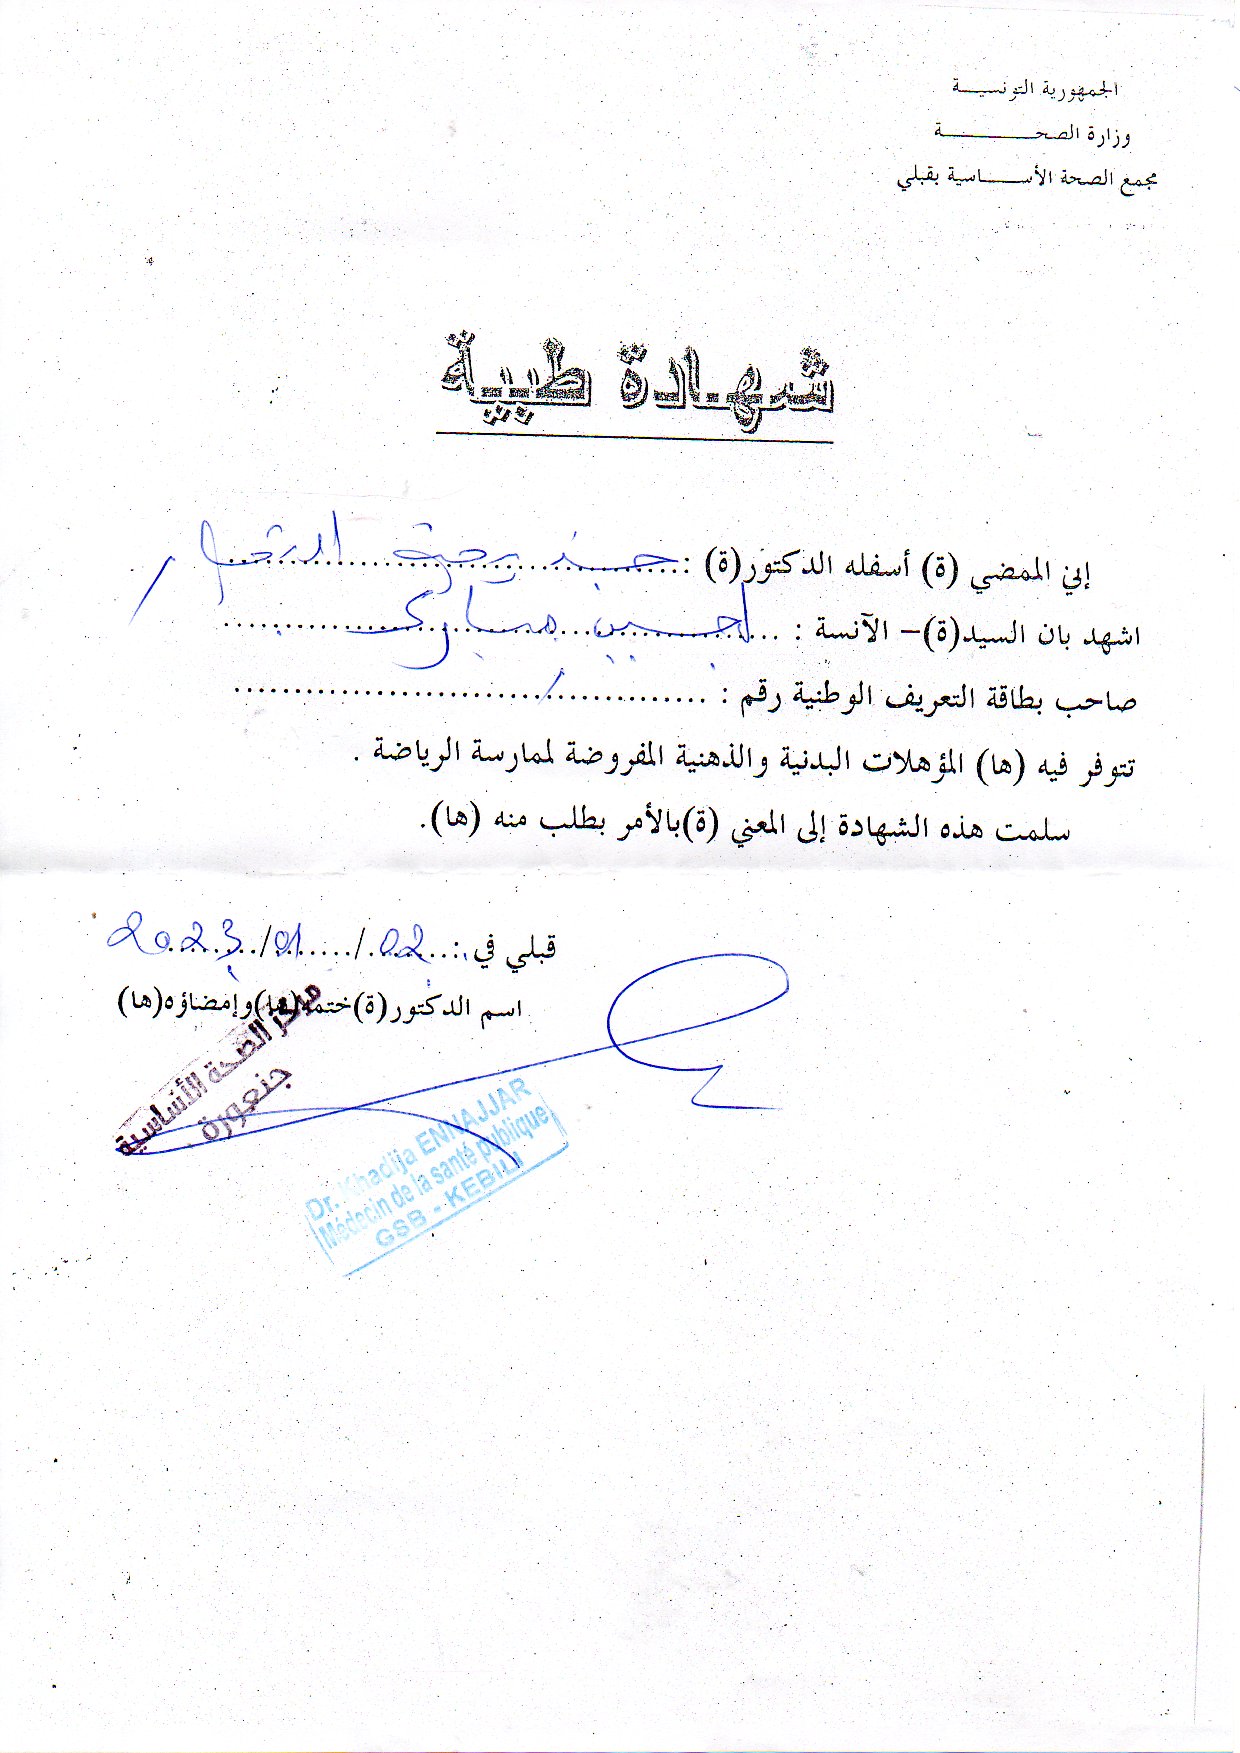 الجمهورية التونسيـــة
وزارة الصحـــــــة
مجمع الصحة الأســـاسية بقبلي
شهادة طبية
إني الممضي (ة) أسفله الدكتور(ة) :
اشهد بان السيد(ة)– الآنسة : مباركي
صاحب بطاقة التعريف الوطنية رقم : /
تتوفر فيه (ها) المؤهلات البدنية والذهنية المفروضة لممارسة الرياضة .
سلمت هذه الشهادة إلى المعني (ة)بالأمر بطلب منه (ها).
قبلي في :02/01/2023
اسم الدكتور(ة)ختمه(ها)وإمضاؤه(ها)
مركز الصحة الأساسية
جنعورة
Dr. Khadija ENNAJJAR
Médecin de la santé publique
GSB - KEBILI